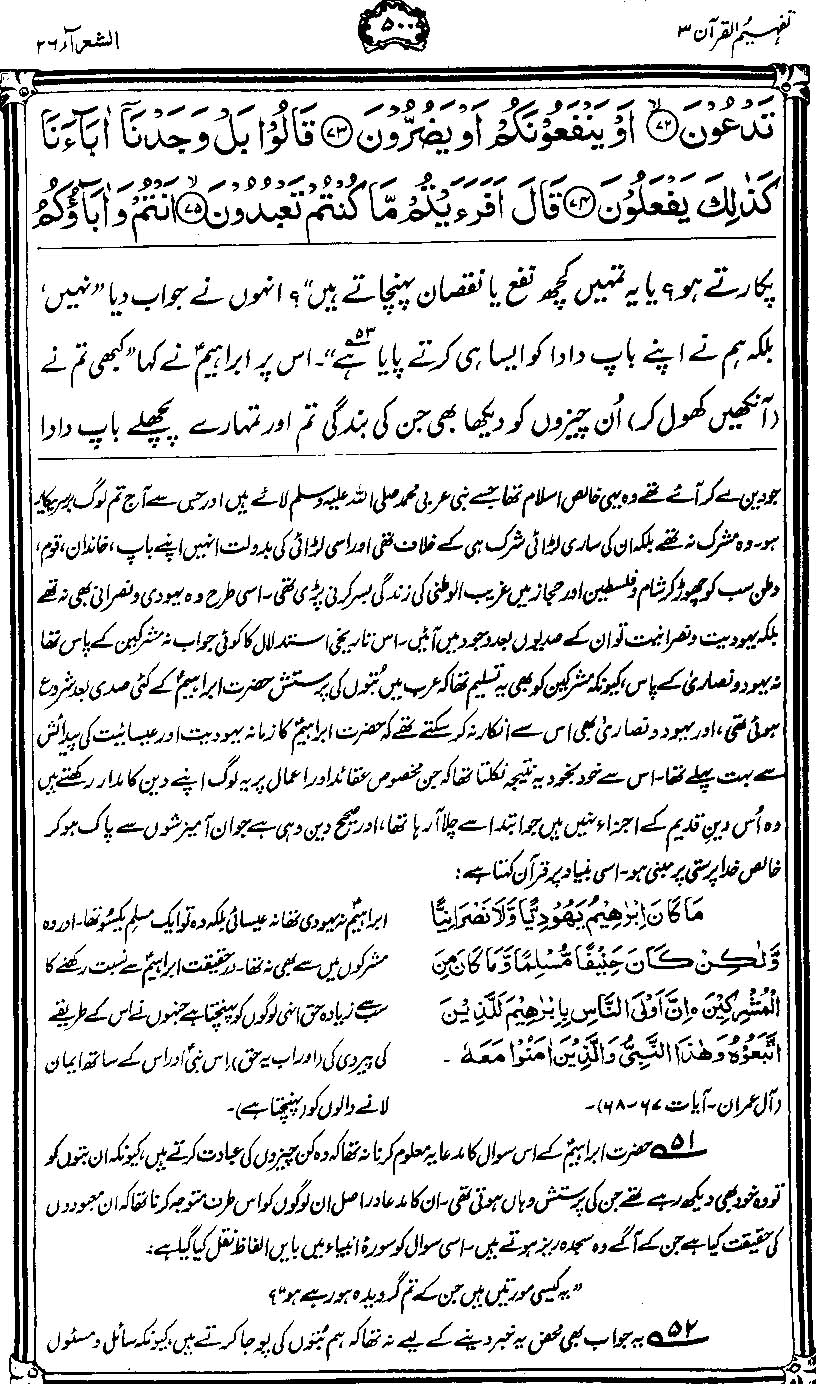 تفہیم القرآن ۳
۵۰۰
الشعرآء ۲۶
تَدْعُوْنَ ﴿۷۲﴾ اَوْ يَنْفَعُوْنَكُمْ اَوْ يَضُرُّوْنَ ﴿۷۳﴾ قَالُوْا بَلْ وَجَدْنَآ اٰبَآءَنَا
كَذٰلِكَ يَفْعَلُوْنَ ﴿۷۴﴾ قَالَ اَفَرَءَيْتُمْ مَّا كُنْتُمْ تَعْبُدُوْنَ ﴿۷۵﴾ اَنْتُمْ وَاٰبَآؤُكُمُ
پکارتے ہو؟ یا یہ تمہیں کچھ نفع یا نقصان پہنچاتے ہیں“؟ انہوں نے جواب دیا ”نہیں،
بلکہ ہم نے اپنے باپ دادا کو ایسا ہی کرتے پایا ہے۵۳“۔ اس پر ابراہیمؑ نے کہا ”کبھی تم نے
(آنکھیں کھول کر) اُن چیزوں کو دیکھا بھی جن کی بندگی تم اور تمہارے پچھلے باپ دادا
جو دین لے کر آئے تھے وہ یہی خالص اسلام تھا جسے نبی عربی محمد صلی اللہ علیہ وسلم لائے ہیں اور جس سے آج تم لوگ برسرپیکار
ہو۔ وہ مشرک نہ تھے بلکہ ان کی ساری لڑائی شرک ہی کے خلاف تھی اور اسی لڑائی کی بدولت انہیں اپنے باپ، خاندان، قوم،
وطن سب کو چھوڑ کر شام و فلسطین اور حجاز میں غریب الوطنی کی زندگی بسر کرنی پڑی تھی۔ اسی طرح وہ یہودی و نصرانی بھی نہ تھے
بلکہ یہودیت و نصرانیت تو ان کے صدیوں بعد وجود میں آئیں۔ اس تاریخی استدلال کا کوئی جواب نہ مشرکین کے پاس تھا
نہ یہود و نصاریٰ کے پاس، کیونکہ مشرکین کو بھی یہ تسلیم تھا کہ عرب میں بُتوں کی پرستش حضرت ابراہیمؑ کے کئی صدی بعد شروع
ہوئی تھی، اور یہود و نصاریٰ بھی اس سے انکار نہ کر سکتے تھے کہ حضرت ابراہیمؑ کا زمانہ یہودیت اور عیسائیت کی پیدائش
سے بہت پہلے تھا۔ اس سے خود بخود یہ نتیجہ نکلتا تھا کہ جن مخصوص عقائد اور اعمال پر یہ لوگ اپنے دین کا مدار رکھتے ہیں
وہ اُس دینِ قدیم کے اجزاء نہیں ہیں جو ابتدا سے چلا آرہا تھا، اور صحیح دین وہی ہے جو ان آمیزشوں سے پاک ہو کر
خالص خدا پرستی پر مبنی ہو۔ اسی بنیاد پر قرآن کہتا ہے:
مَا كَانَ اِبْرٰهِيْمُ يَهُوْدِيًّا وَّلَا نَصْرَانِيًّا
وَّلٰكِنْ كَانَ حَنِيْفًا مُّسْلِمًا وَّمَا كَانَ مِنَ
الْمُشْرِكِيْنَ ہ اِنَّ اَوْلَى النَّاسِ بِاِبْرٰهِيْمَ لَلَّذِيْنَ
اتَّبَعُوْهُ وَهٰذَا النَّبِيُّ وَالَّذِيْنَ اٰمَنُوْا مَعَهٗ۔
(آل عمران۔ آیات ۶۷-۶۸)۔
ابراہیمؑ نہ یہودی تھا نہ عیسائی بلکہ وہ تو ایک مسلم یکسُو تھا۔ اور وہ
مشرکوں میں سے بھی نہ تھا۔ در حقیقت ابراہیمؑ سے نسبت رکھنے کا
سب سے زیادہ حق انہی لوگوں کو پہنچتا ہے جنہوں نے اس کے طریقے
کی پیروی کی (اور اب یہ حق) اس نبیؐ اور اس کے ساتھ ایمان
لانے والوں کو (پہنچتا ہے)۔
۵۱ حضرت ابراہیمؑ کے اس سوال کا مدعا یہ معلوم کرنا نہ تھا کہ وہ کن چیزوں کی عبادت کرتے ہیں، کیونکہ ان بتوں کو
تو وہ خود بھی دیکھ رہے تھے جن کی پرستش وہاں ہوتی تھی۔ ان کا مدعا دراصل ان لوگوں کو اس طرف متوجہ کرنا تھا کہ ان معبودوں
کی حقیقت کیا ہے جن کے آگے وہ سجدہ ریز ہوتے ہیں۔ اسی سوال کو سورۂ انبیاء میں بایں الفاظ نقل کیا گیا ہے:
”یہ کیسی مورتیں ہیں جن کے تم گرویدہ ہو رہے ہو“؟
۵۲ یہ جواب بھی محض یہ خبر دینے کے لیے نہ تھا کہ ہم بُتوں کی پوجا کرتے ہیں، کیونکہ سائل و مسئول